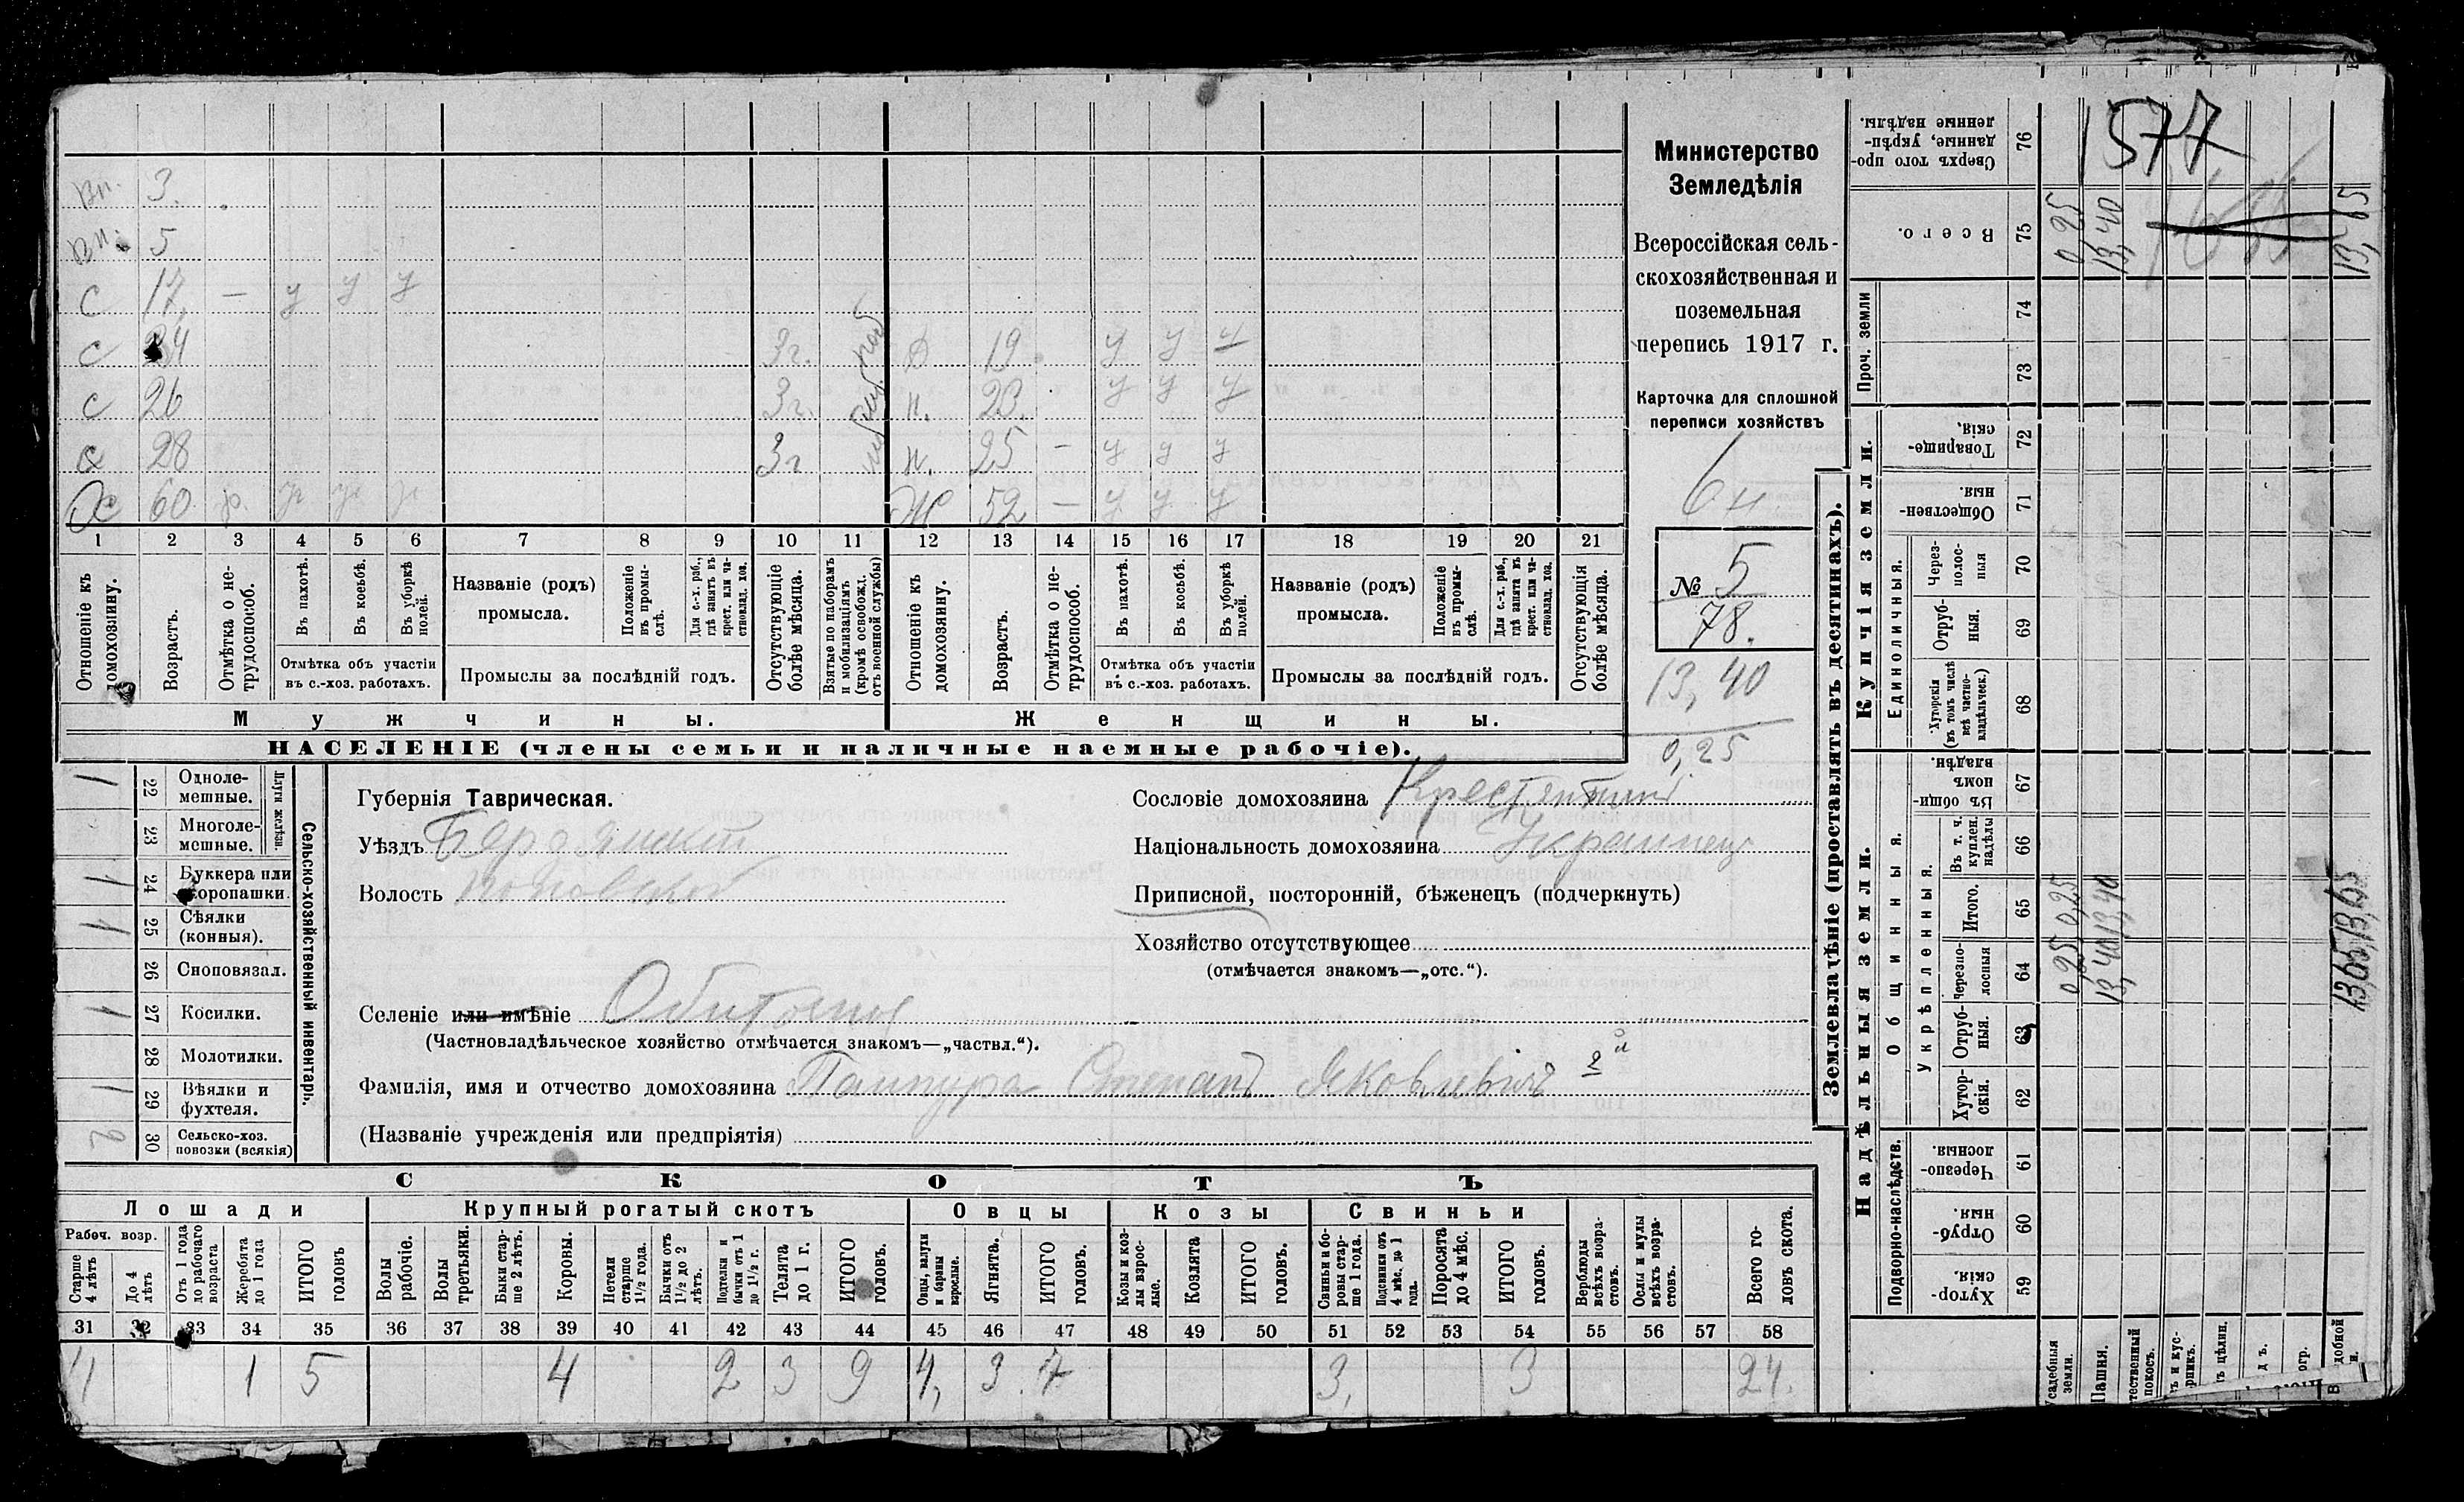 Министерство
Земледѣлія
Всероссійская сель-
скохозяйственная и
поземельная
перепись 1917 г.
Карточка для сплошной
переписи хозяйствъ
6 н
№ 5
78.
13,40
0,25
вн. 3.
вн. 5
с 17, — у у у
с 24 3 г. Д 19 у у у
с 26 3 г. н. 23 у у у
с 28 3 г н. 25 — у у у
Х 60 р. у у у Ж 52 — у у у
1 2 3 4 5 6 7 8 9 10 11 12 13 14 15 16 17 18 19 20 21
Отношеніе къ домохозяину.
Возрастъ.
Отмѣтка о не-трудоспособ.
Въ пахотѣ.
Въ косьбѣ.
Въ уборкѣ полей.
Отмѣтка объ участіи въ с.-хоз. работахъ.
Названіе (родъ) промысла.
Положеніе въ промы-слѣ.
Для с.-х. раб., гдѣ занятъ въ крест. или ча-стновлад. хоз.
Промыслы за послѣдній годъ.
Отсутствующіе болѣе мѣсяца.
Взятые по наборамъ и мобилизаціямъ (кромѣ освобожд. отъ военной службы)
Отношеніе къ домохозяину.
Возрастъ.
Отмѣтка о не-трудоспособ.
Въ пахотѣ.
Въ косьбѣ.
Въ уборкѣ полей.
Отмѣтка объ участіи въ с.-хоз. работахъ.
Названіе (родъ) промысла.
Положеніе въ промы-слѣ.
Для с.-х. раб., гдѣ занята въ крест. или ча-стновлад. хоз.
Промыслы за послѣдній годъ.
Отсутствующія болѣе мѣсяца.
Мужчины.
Женщины.
НАСЕЛЕНІЕ (члены семьи и наличные наемные рабочіе).
Сельско-хозяйственный инвентарь.
Плуги желѣзн.
1 22 Одноле-мешные.
23 Многоле-мешные.
1 24 Буккера или скоропашки.
1 25 Сѣялки (конныя).
26 Сноповязал.
1 27 Косилки.
28 Молотилки.
1 29 Вѣялки и фухтеля.
2 30 Сельско-хоз. повозки (всякія)
Губернія Таврическая.
Уѣздъ Бердянскій
Волость Поповская
Селеніе или имѣніе Обиточная
(Частновладѣльческое хозяйство отмѣчается знакомъ—„частвл.“).
Фамилія, имя и отчество домохозяина Пампура Степанъ Яковлевичъ 2й
(Названіе учрежденія или предпріятія)
Сословіе домохозяина Крестьянинъ
Національность домохозяина Украинецъ
Приписной, посторонній, бѣженецъ (подчеркнуть)
Хозяйство отсутствующее
(отмѣчается знакомъ—„отс.“).
СКОТЪ
Лошади
Крупный рогатый скотъ
Овцы
Козы
Свиньи
Рабоч. возр.
Старше 4 лѣтъ
До 4 лѣтъ
Отъ 1 года до рабочаго возраста
Жеребята до 1 года
ИТОГО головъ
Волы рабочіе.
Волы третьяки.
Быки стар-ше 2 лѣтъ.
Коровы.
Нетели старше 1½ года.
Бычки отъ 1½ до 2 лѣтъ.
Подтелки и бычки отъ 1 до 1½ г.
Телята до 1 г.
ИТОГО головъ.
Овцы, валухи и бараны взрослые.
Ягнята.
ИТОГО головъ.
Козы и коз-лы взрос-лые.
Козлята
ИТОГО головъ.
Свиньи и бо-ровы стар-ше 1 года.
Подсвинки отъ 4 мѣс. до 1 года.
Поросята до 4 мѣс.
ИТОГО головъ.
Верблюды всѣхъ возра-стовъ.
Ослы и мулы всѣхъ возра-стовъ.
Всего го-ловъ скота.
31 32 33 34 35 36 37 38 39 40 41 42 43 44 45 46 47 48 49 50 51 52 53 54 55 56 57 58
4 1 5 4 2 3 9 4, 3 7 3, 3 24.
Землевладѣніе (проставлять въ десятинахъ).
Купчія земли.
Надѣльныя земли.
1577
Сверхъ того про-данные, укрѣп-ленные надѣлы. 76
Всего. 75 0,25 13,40 13,65
Проч. земли
74
73
Товарище-скія, 72
Обществен-ныя. 71
Единоличныя.
Через-полос-ныя 70
Отруб-ныя. 69
Хуторскія (въ томъ числѣ всѣ частно-владѣльческ.) 68
Общинныя.
Въ общи-номъ владѣн. 67
Укрѣпленныя.
Въ т. ч. куплен. надѣлы 66
Итого. 65 0,25 13,40 13,65
Черезпо-лосныя 64 0,25 13,40 13,65
Отруб-ныя. 63
Хутор-скія. 62
Подворно-наслѣдств.
Черезпо-лосныя 61
Отруб-ныя. 60
Хутор-скія. 59
садебныя земли.
Пашня.
тественный покосъ.